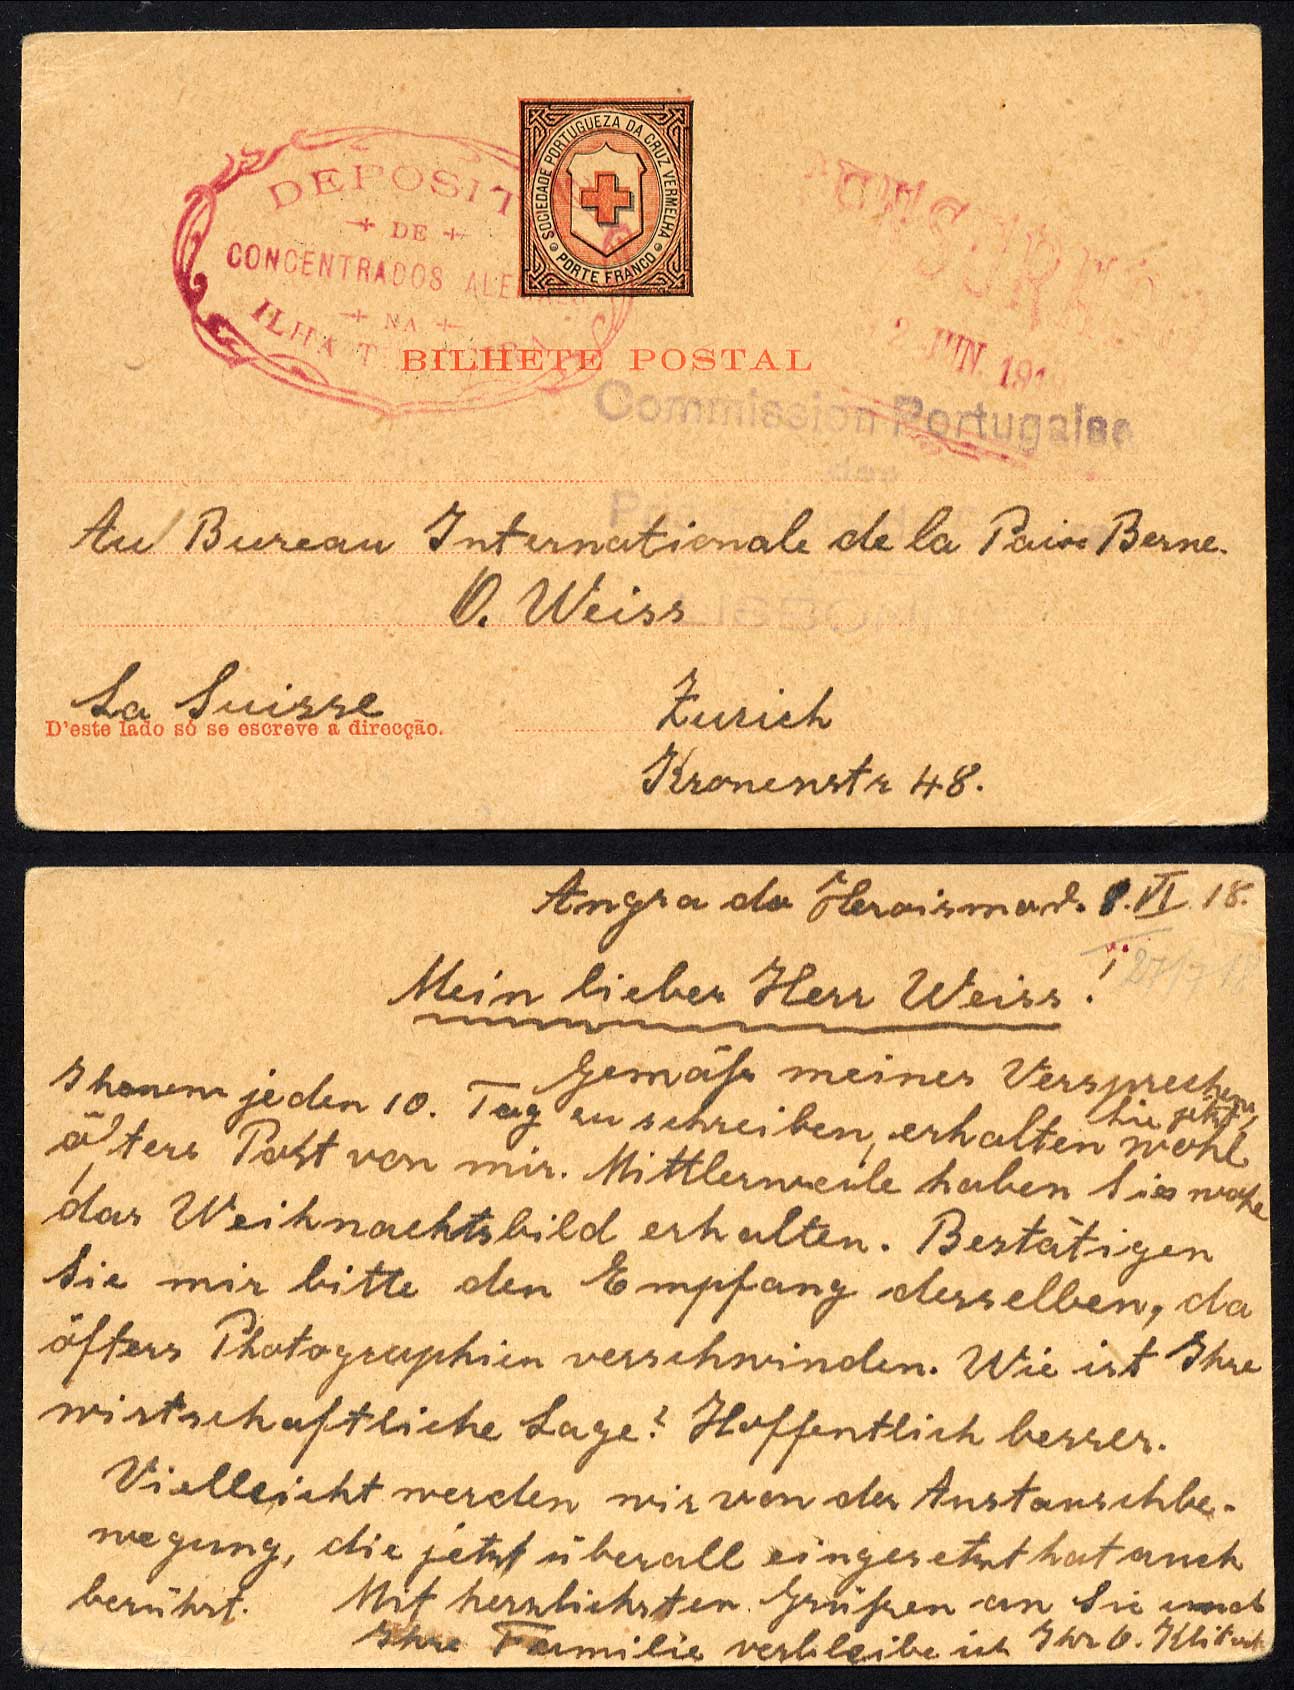 DEPOSITO
DE
CONCENTRADOS ALEMÃES
NA
ILHA T
SOCIEDADE PORTUGUEZA DA CRUZ VERMELHA
PORTE FRANCO
2 JUN. 191
BILHETE POSTAL
Commission Portugaise
des
LISBONNE
Au Bureau Internationale de la Paix Berne.
O. Weiss
La Suisse
D'este lado só se escreve a direcção.
Zurich
Kronenstr 48.
Angra do Heroismo d. 1. VI. 18.
27/7 18
Mein lieber Herr Weiss!
Gemäß meines Versprechens,
Ihnen jeden 10. Tag zu schreiben, erhalten Sie jetzt wohl
öfters Post von mir. Mittlerweile haben Sie wohl
das Weihnachtsbild erhalten. Bestätigen
Sie mir bitte den Empfang desselben, da
öfters Photographien verschwinden. Wie ist Ihre
wirtschaftliche Lage? Hoffentlich besser.
Vielleicht werden wir von der Austauschbe-
wegung, die jetzt überall eingesetzt hat auch
berührt. Mit herzlichsten Grüßen an Sie und
Ihre Familie verbleibe ich Ihr O.